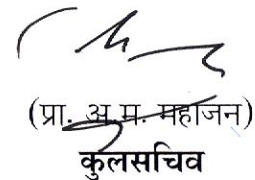 (प्रा. अ.म. महाजन)
कुलसचिव